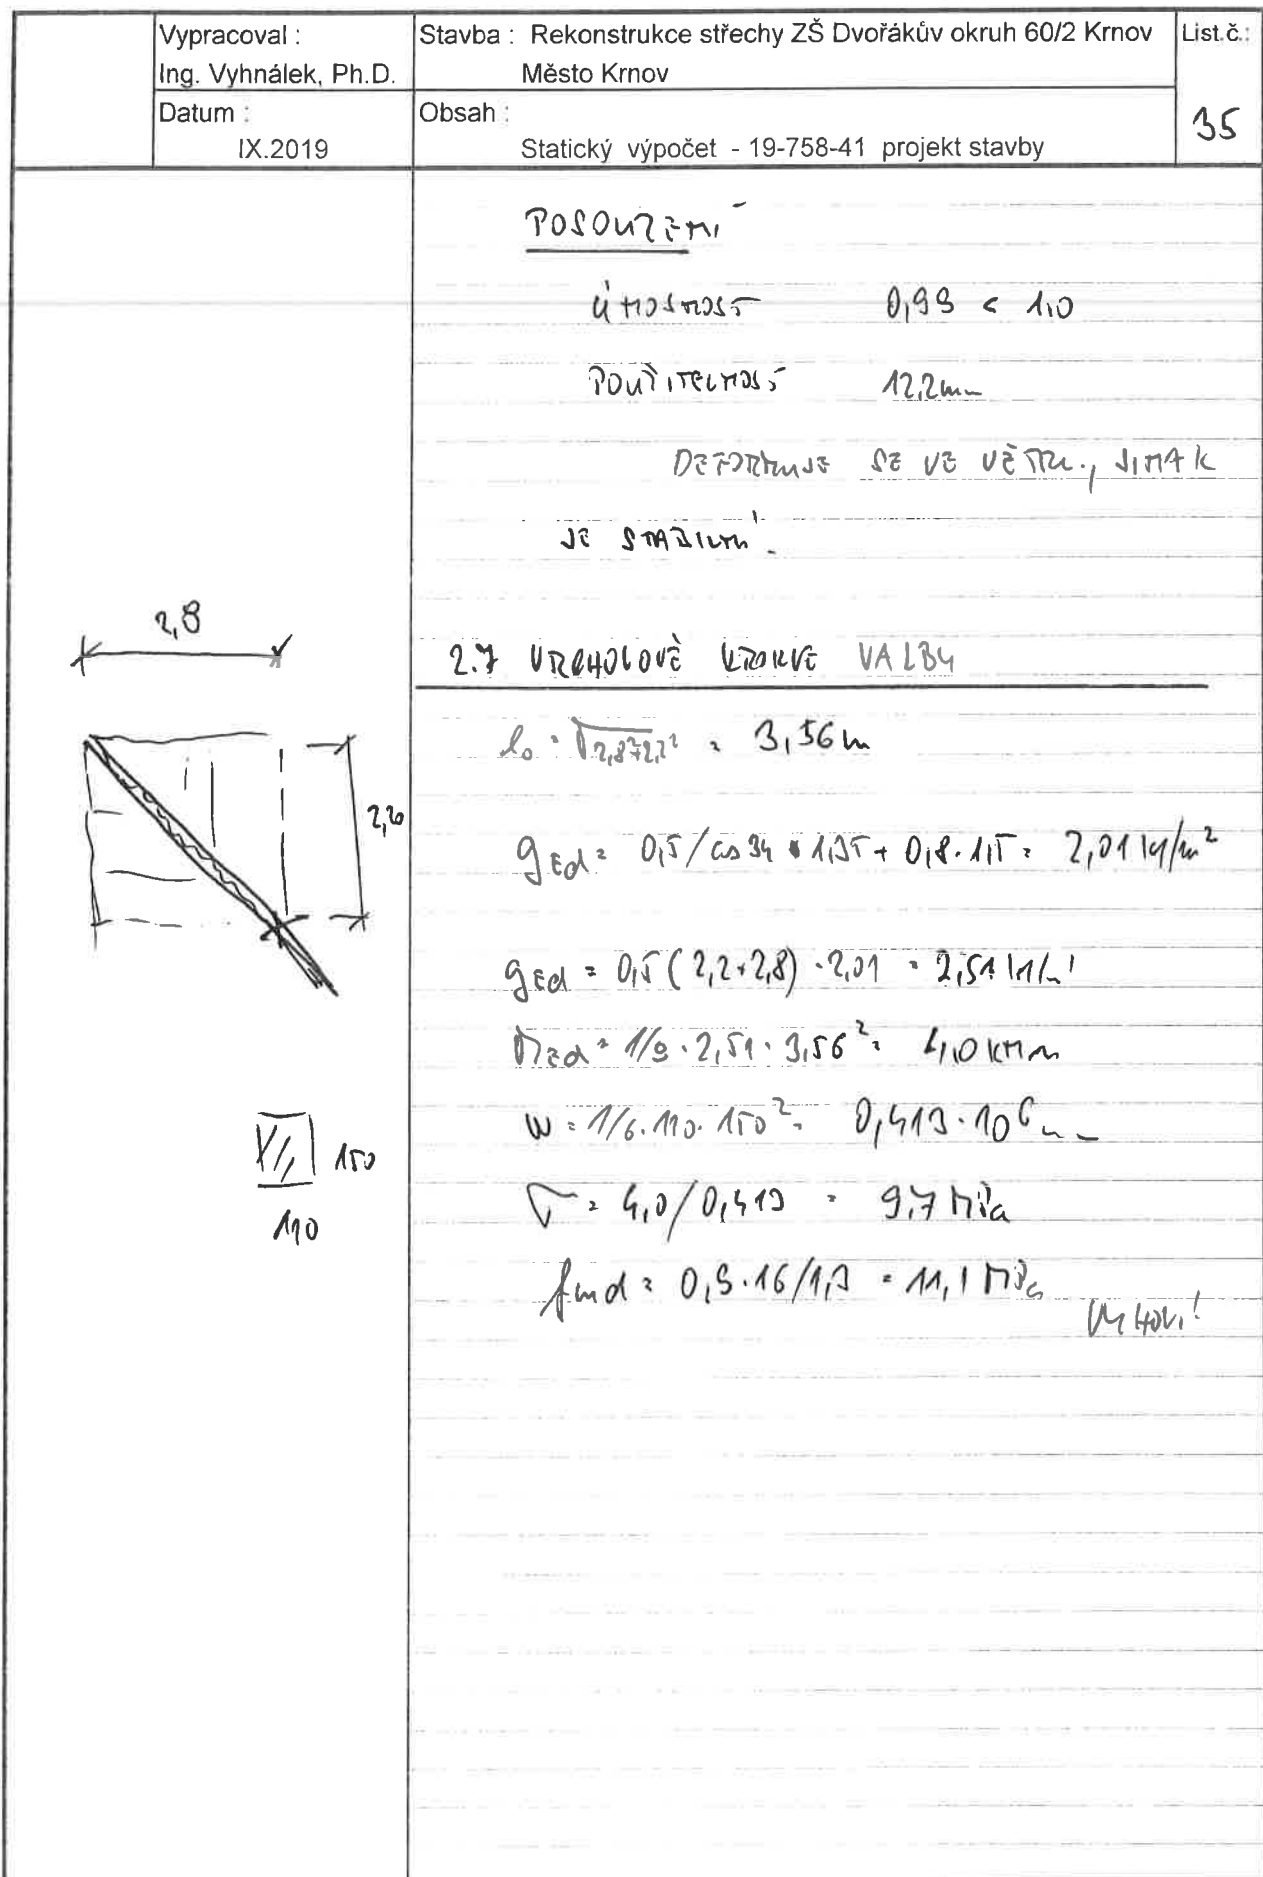 Vypracoval :
Ing. Vyhnálek, Ph.D.
Stavba : Rekonstrukce střechy ZŠ Dvořákův okruh 60/2 Krnov
Město Krnov
List.č.:
35
Datum :
IX.2019
Obsah :
Statický výpočet - 19-758-41 projekt stavby
POSOUZENÍ
ÚNOSNOST 0,99 < 1,0
POUŽITELNOST 12,2mm
DEFORMUJE SE VE VĚTRU, JINAK
JE STABILNÍ.
2,8
2,20
2.7 VRCHOLOVÉ KROKVE VALBY
l₀ = √2,8²+2,2² = 3,56 m
gEd = 0,5/cos 34 * 1,35 + 0,8 · 1,5 = 2,01 kN/m²
gEd = 0,5 (2,2+2,8) · 2,01 = 2,51 kN/m'
MEd = 1/8 · 2,51 · 3,56² = 4,0 kNm
150
110
W = 1/6 · 110 · 150² = 0,413 · 10⁶ mm
σ = 4,0/0,413 = 9,7 MPa
fmd = 0,9 · 16/1,3 = 11,1 MPa
VYHOVÍ!